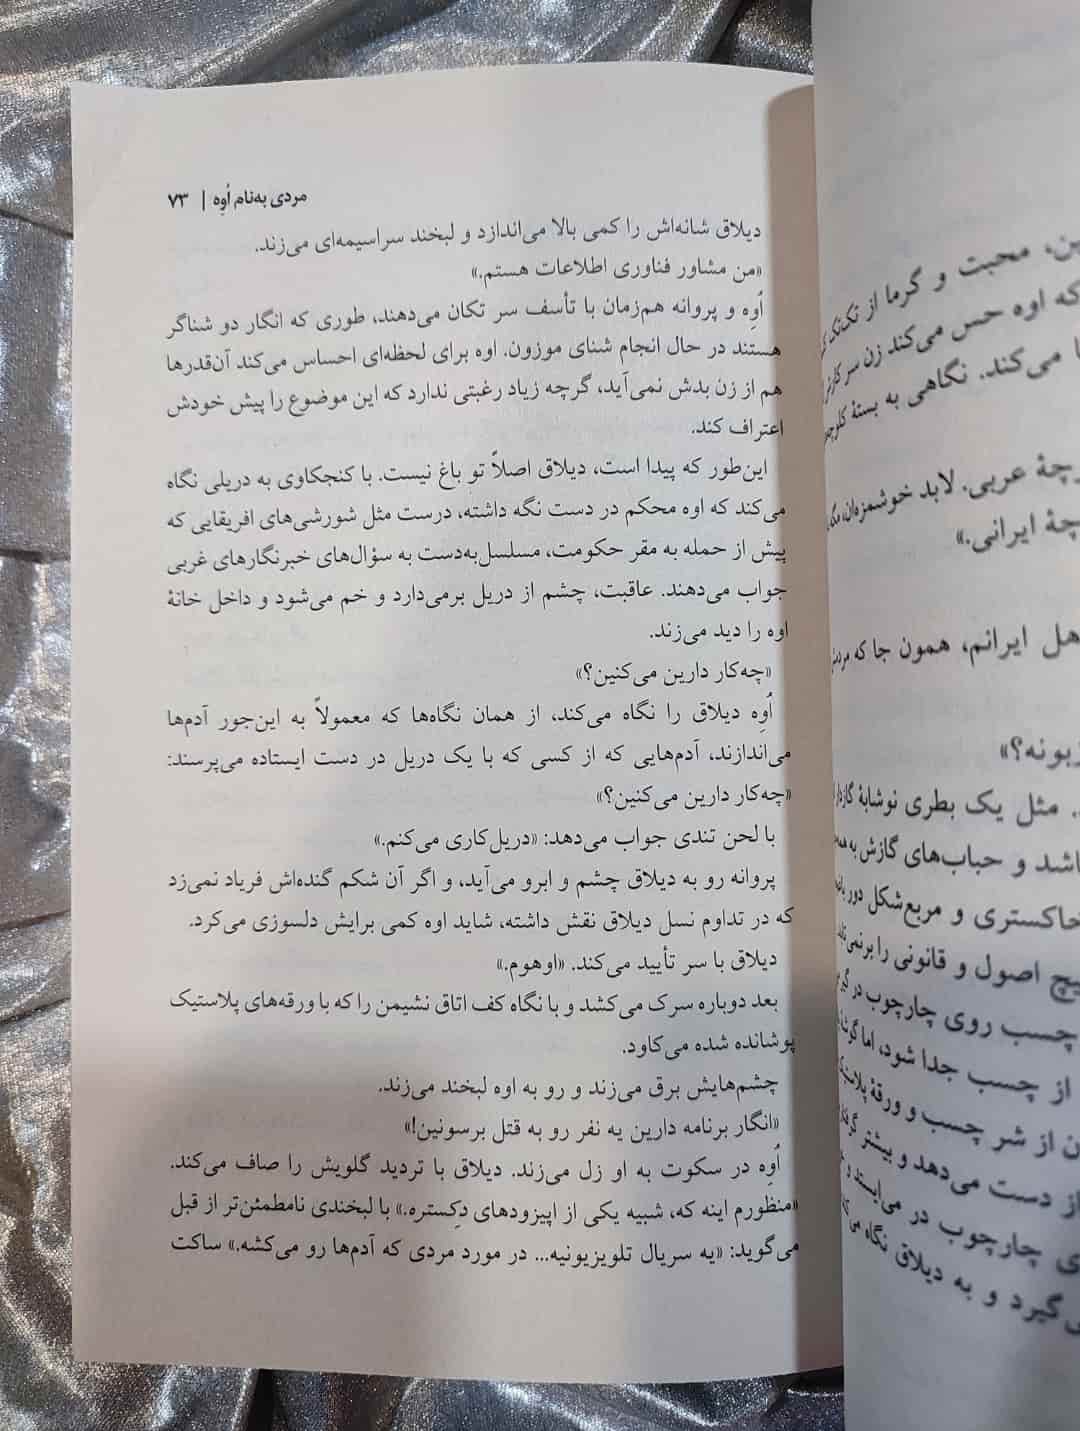 مردی به‌نام اُوِه | ۷۳
دیلاق شانه‌اش را کمی بالا می‌اندازد و لبخند سراسیمه‌ای می‌زند.
«من مشاور فناوری اطلاعات هستم.»
اُوِه و پروانه هم‌زمان با تأسف سر تکان می‌دهند، طوری که انگار دو شناگر
هستند در حال انجام شنای موزون. اوه برای لحظه‌ای احساس می‌کند آن‌قدرها
هم از زن بدش نمی‌آید، گرچه زیاد رغبتی ندارد که این موضوع را پیش خودش
اعتراف کند.
این‌طور که پیدا است، دیلاق اصلاً تو باغ نیست. با کنجکاوی به دریلی نگاه
می‌کند که اوه محکم در دست نگه داشته، درست مثل شورشی‌های افریقایی که
پیش از حمله به مقر حکومت، مسلسل‌به‌دست به سؤال‌های خبرنگارهای غربی
جواب می‌دهند. عاقبت، چشم از دریل برمی‌دارد و خم می‌شود و داخل خانهٔ
اوه را دید می‌زند.
«چه‌کار دارین می‌کنین؟»
اُوِه دیلاق را نگاه می‌کند، از همان نگاه‌ها که معمولاً به این‌جور آدم‌ها
می‌اندازند، آدم‌هایی که از کسی که با یک دریل در دست ایستاده می‌پرسند:
«چه‌کار دارین می‌کنین؟»
با لحن تندی جواب می‌دهد: «دریل‌کاری می‌کنم.»
پروانه رو به دیلاق چشم و ابرو می‌آید، و اگر آن شکم گنده‌اش فریاد نمی‌زد
که در تداوم نسل دیلاق نقش داشته، شاید اوه کمی برایش دلسوزی می‌کرد.
دیلاق با سر تأیید می‌کند. «اوهوم.»
بعد دوباره سرک می‌کشد و با نگاه کف اتاق نشیمن را که با ورقه‌های پلاستیک
پوشانده شده می‌کاود.
چشم‌هایش برق می‌زند و رو به اوه لبخند می‌زند.
«انگار برنامه دارین یه نفر رو به قتل برسونین!»
اُوِه در سکوت به او زل می‌زند. دیلاق با تردید گلویش را صاف می‌کند.
«منظورم اینه که، شبیه یکی از اپیزودهای دِکستره.» با لبخندی نامطمئن‌تر از قبل
می‌گوید: «یه سریال تلویزیونیه... در مورد مردی که آدم‌ها رو می‌کشه.» ساکت
محبت و گرما از تک‌تک
که اوه حس می‌کند زن سر
می‌کند. نگاهی به بستهٔ
عربی. لابد خوشمزه‌ان،
ایرانی.»
ایرانم، همون جا که
مثل یک بطری نوشابهٔ
و حباب‌های گازش به
خاکستری و مربع‌شکل دور
اصول و قانونی را
چسب روی چارچوب در
از چسب جدا شود، اما
از شر چسب و ورقهٔ
از دست می‌دهد و بیشتر
چارچوب در می‌ایستد و
و به دیلاق نگاه